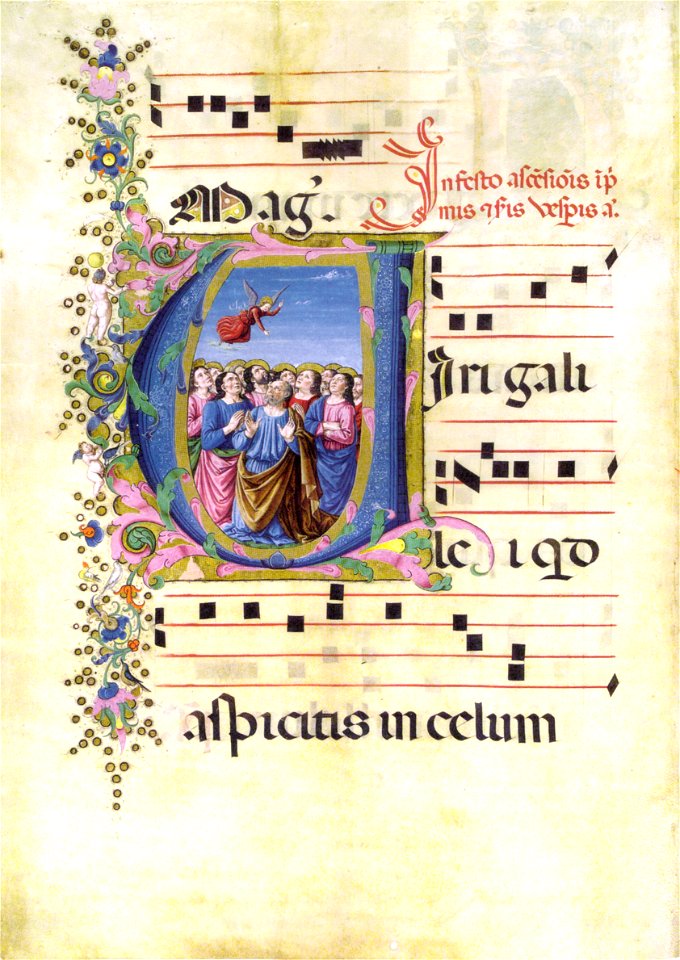 Mag̕.
In festo ascēsiōis ip̄
mis ⁊ sīs Vesp̄is a̕.
VIri gali
le i qd
aſpicitis in celum